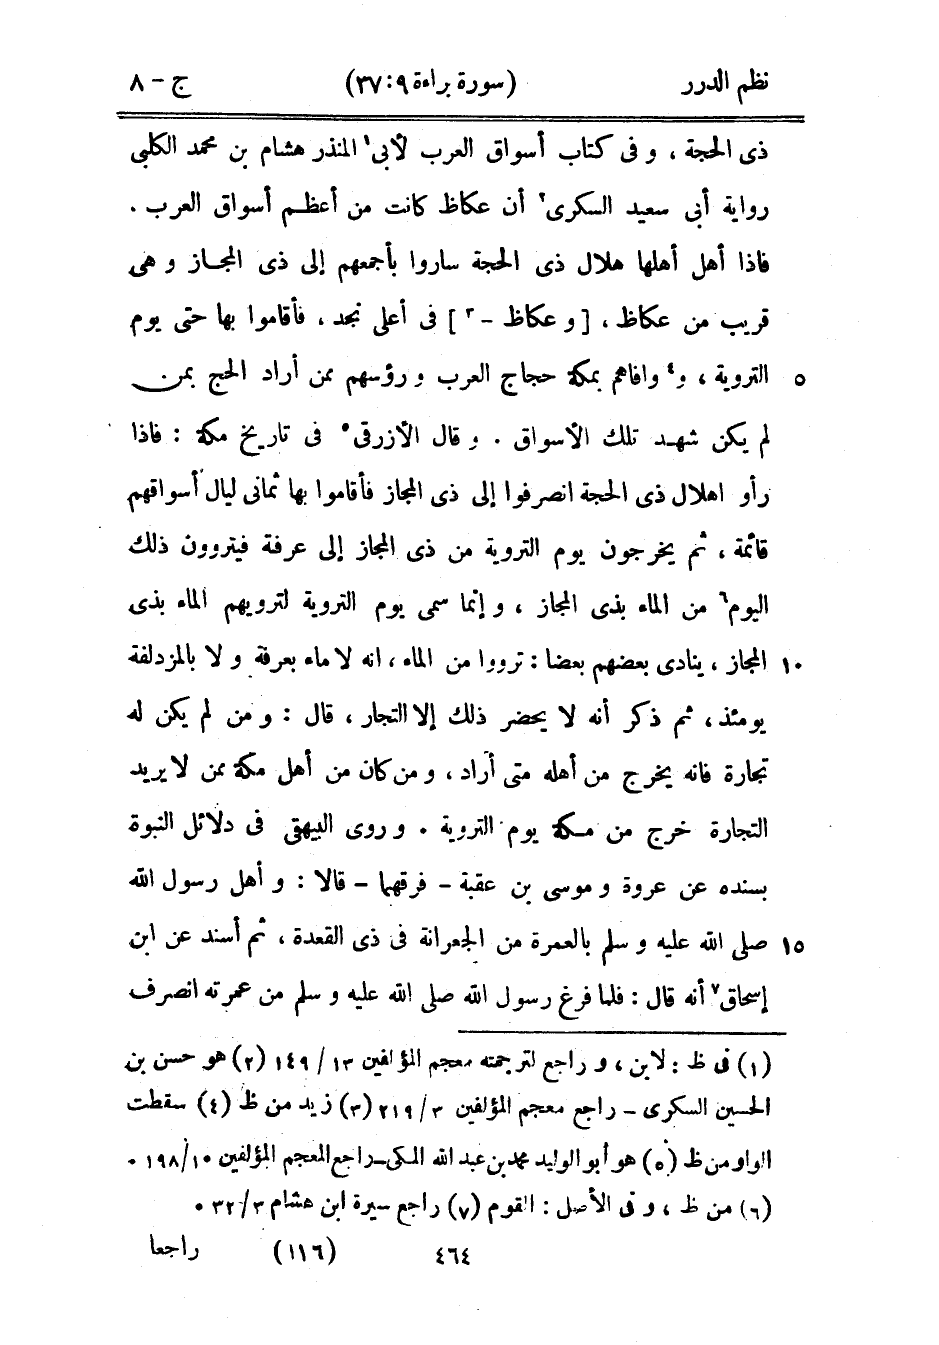 نظم الدرر (سورة براءة ٩:٣٧) ج - ٨
ذى الحجة ، و فى كتاب أسواق العرب لأبى١ المنذر هشام بن محمد الكلبى
رواية أبى سعيد السكرى٢ أن عكاظ كانت من أعظم أسواق العرب .
فاذا أهل أهلها هلال ذى الحجة ساروا بأجمعهم إلى ذى المجاز و هى
قريب من عكاظ ، [ و عكاظ - ٣ ] فى أعلى نجد ، فأقاموا بها حتى يوم
٥ التروية ، و٤ وافاهم بمكة حجاج العرب و رؤسهم ممن أراد الحج بمن
لم يكن شهد تلك الأسواق . و قال الأزرقى٥ فى تاريخ مكة : فاذا
رأو اهلال ذى الحجة انصرفوا إلى ذى المجاز فأقاموا بها ثمانى ليال أسواقهم
قائمة ، ثم يخرجون يوم التروية من ذى المجاز إلى عرفة فيتروون ذلك
اليوم٦ من الماء بذى المجاز ، و إنما سمى يوم التروية لترويهم الماء بذى
١٠ المجاز ، ينادى بعضهم بعضا : ترووا من الماء ، انه لا ماء بعرفة و لا بالمزدلفة
يومئذ ، ثم ذكر أنه لا يحضر ذلك إلا التجار ، قال : و من لم يكن له
تجارة فانه يخرج من أهله متى أراد ، و من كان من أهل مكة ممن لا يريد
التجارة خرج من مكة يوم التروية . و روى البيهقى فى دلائل النبوة
بسنده عن عروة و موسى بن عقبة - فرقهما - قالا : و أهل رسول الله
١٥ صلى الله عليه و سلم بالعمرة من الجعرانة فى ذى القعدة ، ثم أسند عن ابن
إسحاق٧ أنه قال : فلما فرغ رسول الله صلى الله عليه و سلم من عمرته انصرف
(١) فى ظ : لابن ، و راجع لترجمته معجم المؤلفين ١٣ / ١٤٩ (٢) هو حسن بن
الحسين السكرى - راجع معجم المؤلفين ٣ / ٢١٩ (٣) زيد من ظ (٤) سقطت
الواو من ظ (٥) هو أبو الوليد محمد بن عبد الله المكى - راجع المعجم المؤلفين ١٠/ ١٩٨ .
(٦) من ظ ، و فى الأصل : القوم (٧) راجع سيرة ابن هشام ٣ / ٣٢ .
٤٦٤ (١١٦) راجعا